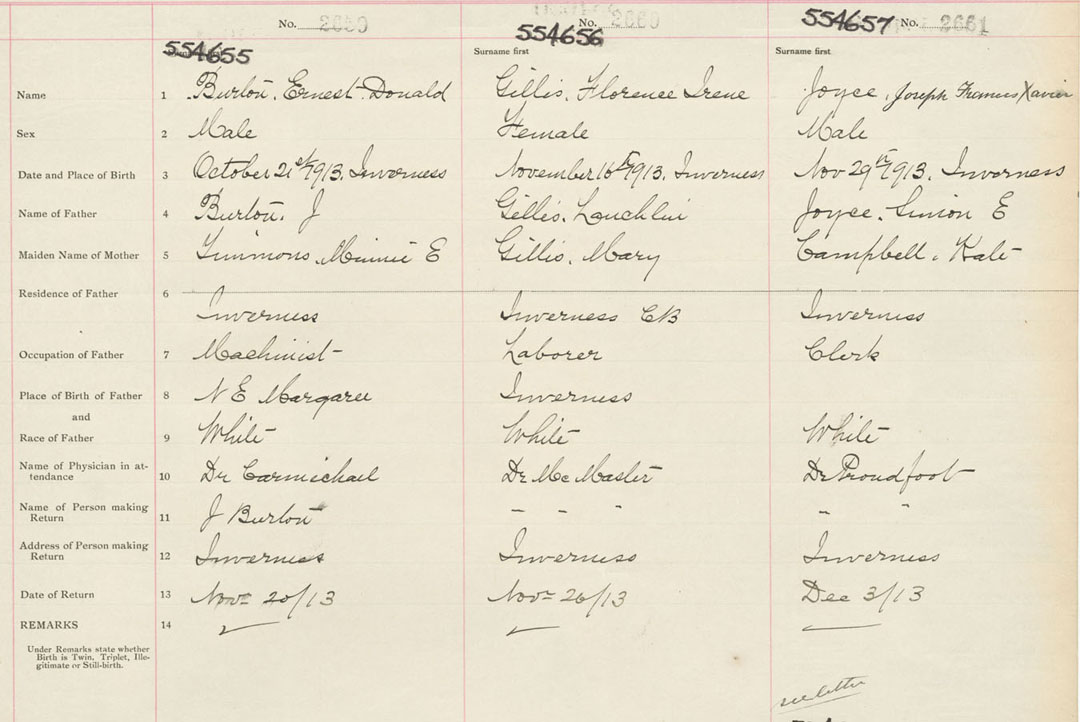 No. 2660 No. 2661
554655 554656 554657
Surname first Surname first
Name 1 Burton, Ernest Donald Gillis, Florence Irene Joyce, Joseph Francis Xavier
Sex 2 Male Female Male
Date and Place of Birth 3 October 21st/1913, Inverness November 16th/1913, Inverness Nov 29th/1913, Inverness
Name of Father 4 Burton, J Gillis, Lauchlin Joyce, Simon E
Maiden Name of Mother 5 Timmons, Minnie E Gillis, Mary Campbell, Kate
Residence of Father 6
Inverness Inverness CB Inverness
Occupation of Father 7 Machinist Laborer Clerk
Place of Birth of Father 8 N E Margaree Inverness
and
Race of Father 9 White White White
Name of Physician in at-
tendance 10 Dr Carmichael Dr McMaster Dr Proudfoot
Name of Person making
Return 11 J Burton " " " " "
Address of Person making
Return 12 Inverness Inverness Inverness
Date of Return 13 Nov 20/13 Nov 26/13 Dec 3/13
REMARKS 14
Under Remarks state whether
Birth is Twin, Triplet, Ille-
gitimate or Still-birth.
see letter